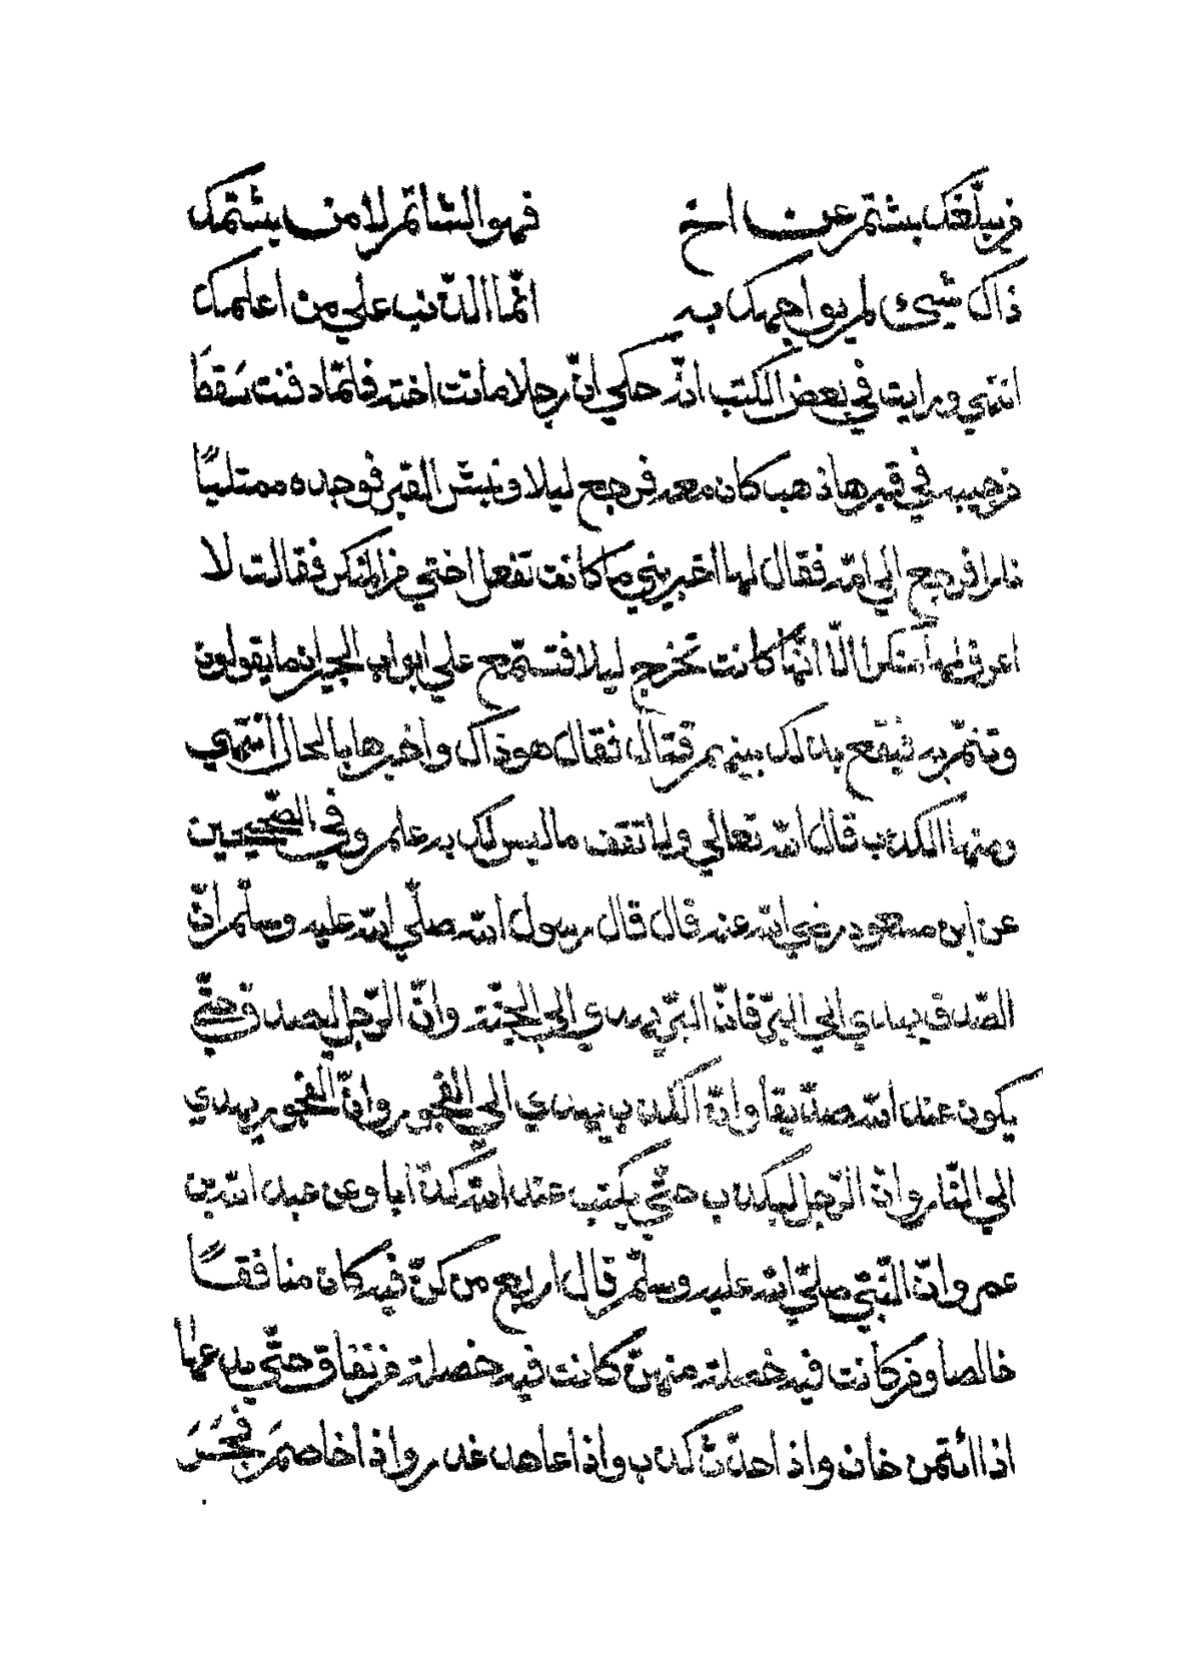 من يبلّغك بشتم عن اخ فهو الشاتم لا من يشتمك
ذاك شيئ لم يواجهك به انّما الذنب علي من اعلمك
انتهي ورايت في بعض الكتب انّه حكي انّ رجلا ماتت اخته فلمّا دفنت سَقَطَ
من جيبه في قبرها ذهب كان معه فرجع ليلا ونبش القبر فوجده ممتليًا
نارا فرجع الي امّه فقال لها اخبريني ما كانت تفعل اختي من المنكر فقالت لا
اعرف لها منكرا الّا انّها كانت تخرج ليلا فتسّمّع علي ابواب الجيران ما يقولون
وتنمّ به فيقع بذلك بينهم قتال فقال هو ذاك واخبرها بالحال انتهي
ومنها الكذب قال الله تعالي ولا تقف ما ليس لك به علم وفي الصّحيحين
عن ابن مسعود رضي الله عنه قال قال رسول الله صلّي الله عليه وسلّم انّ
الصّدق يهدي الي البّر فانّ البّر يهدي الي الجنّة وانّ الرّجل ليصدق حتّي
يكون عند الله صدّيقا وانّ الكذب يهدي الي الفجور وانّ الفجور يهدي
الي النّار وانّ الرّجل ليكذب حتّي يكتب عند الله كذّابا وعن عبد الله بن
عمر وانّ النّبيّ صلّي الله عليه وسلّم قال اربع من كنّ فيه كان منافقًا
خالصا ومن كانت فيه خصلة منهنّ كانت فيه خصلة من نفاق حتّي يدعها
اذا ائتمن خان واذا حدّث كذب واذا عاهد غدر واذا خاصمَ فَجَرَ